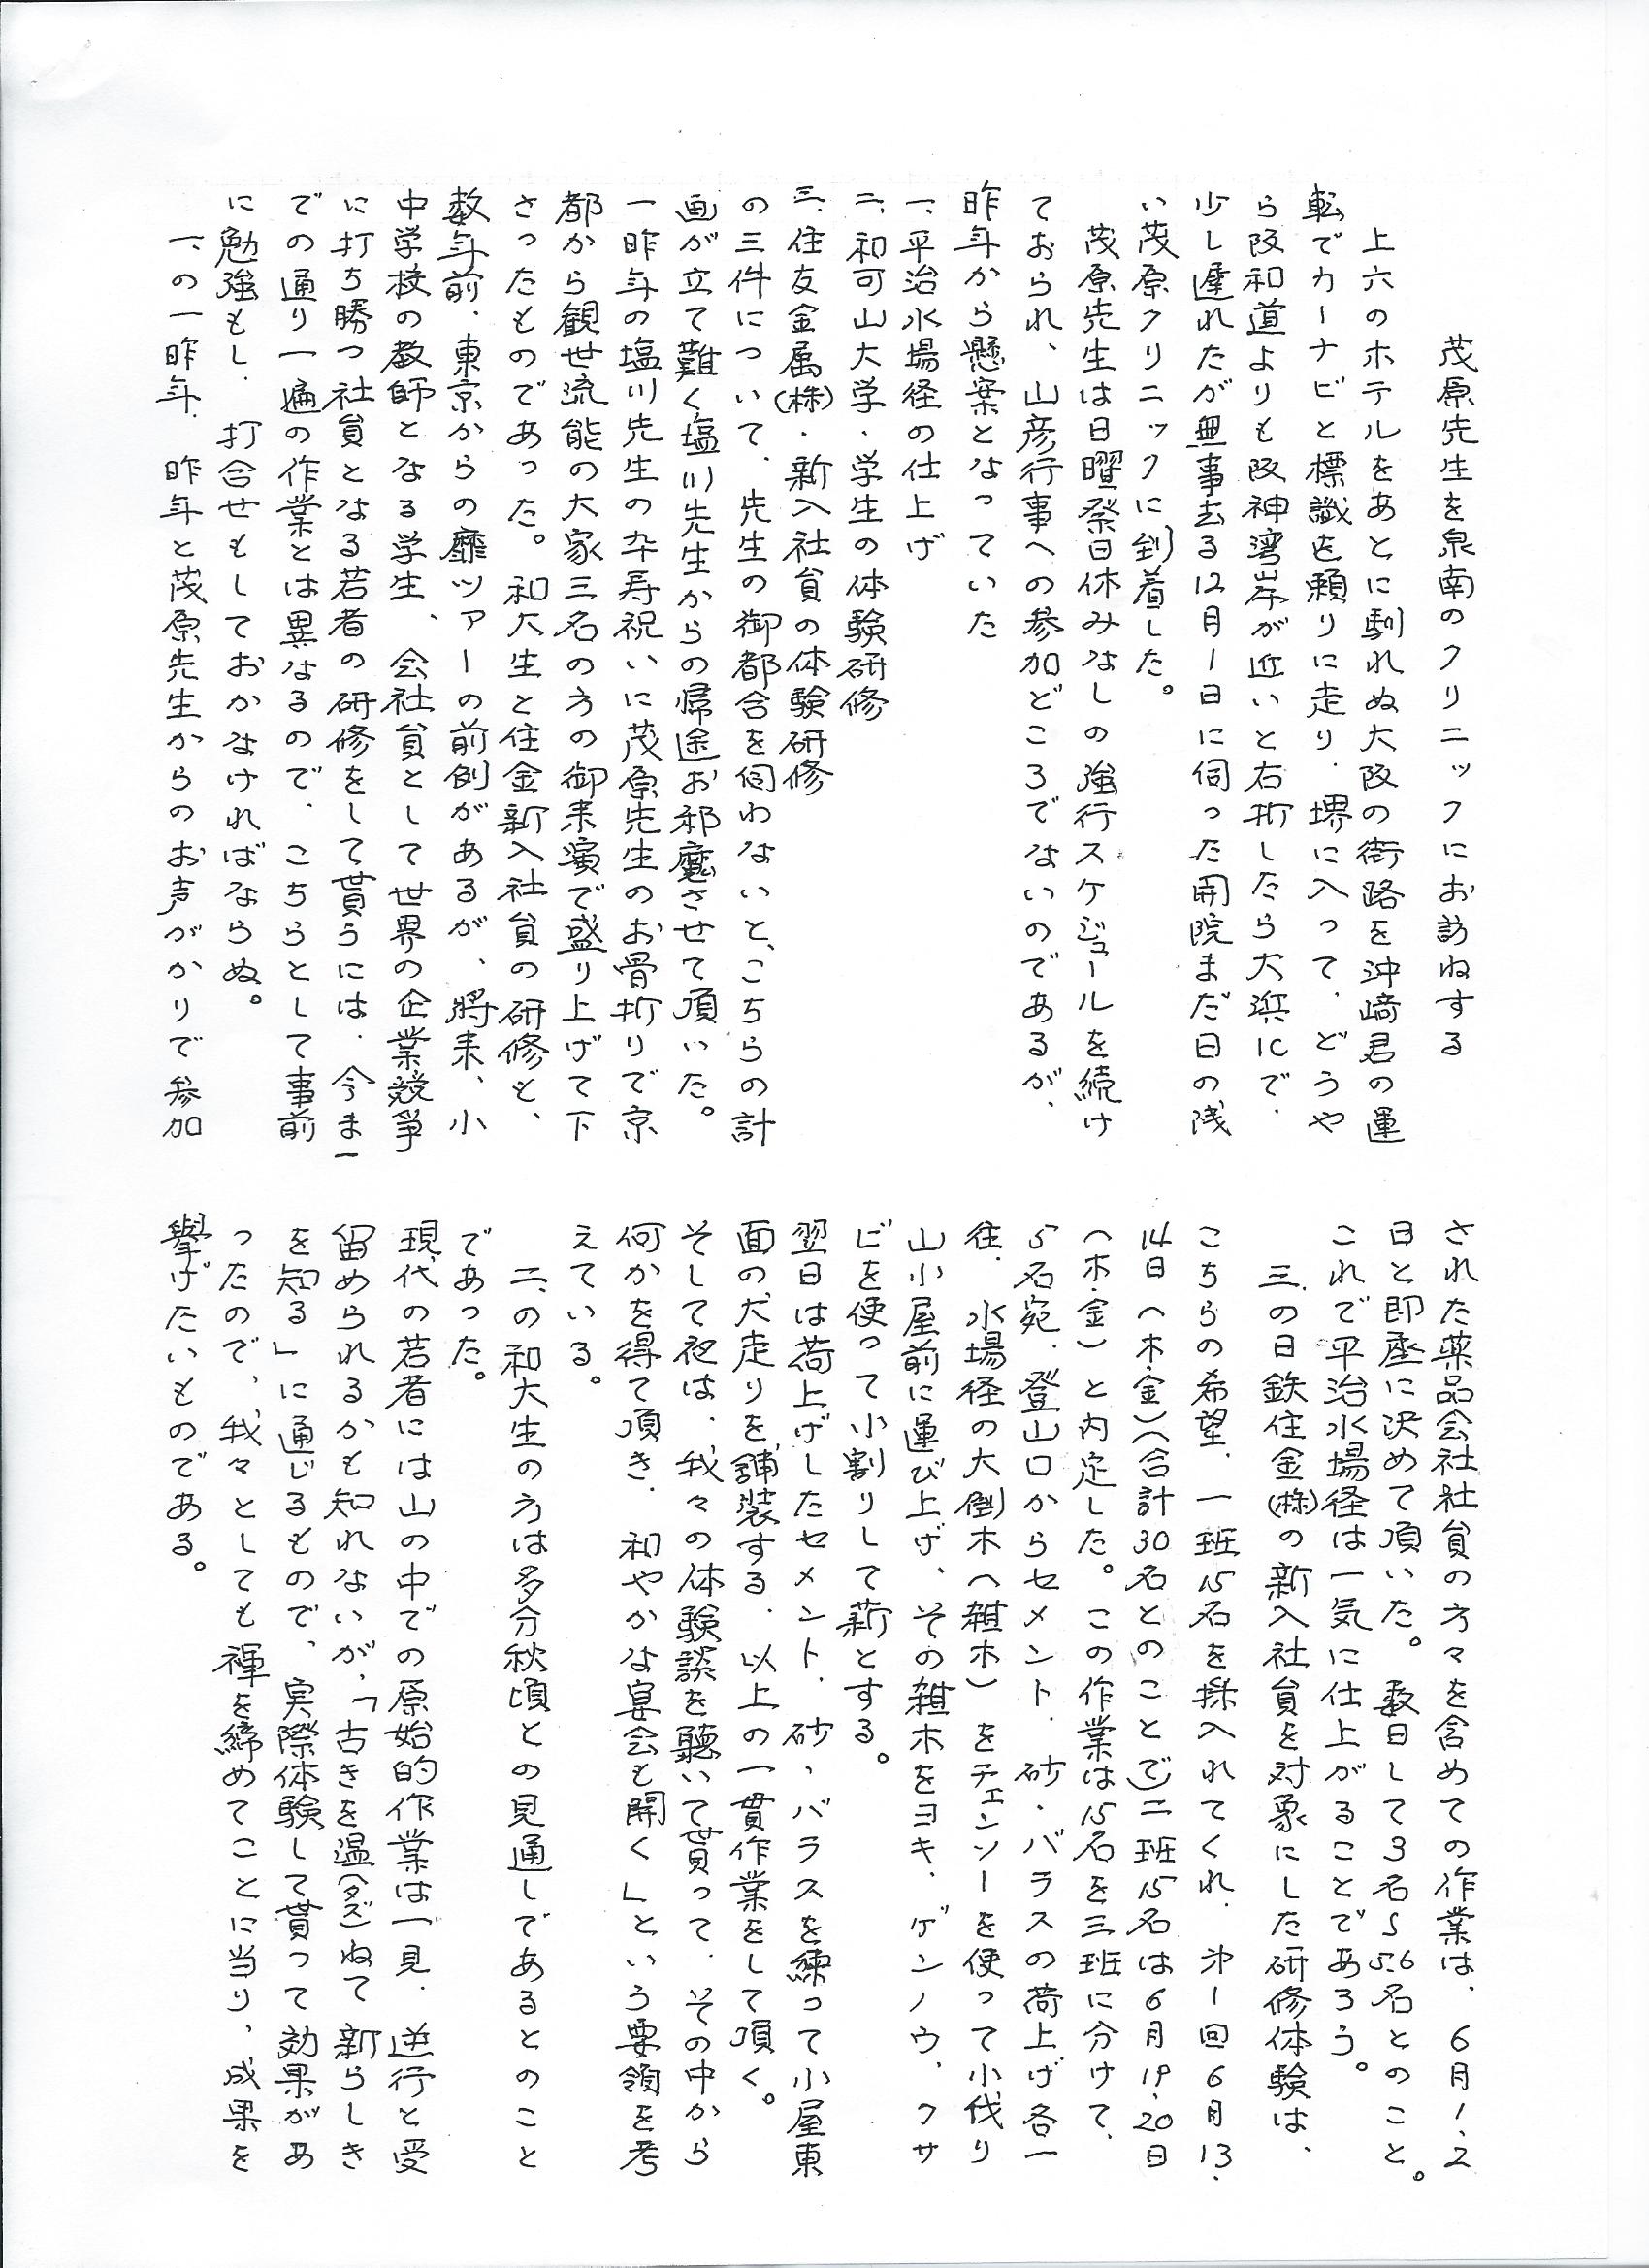 茂原先生を泉南のクリニックにお訪ねする
上六のホテルをあとに馴れぬ大阪の街路を沖﨑君の運
転でカーナビと標識を頼りに走り、堺に入って、どうや
ら阪和道よりも阪神湾岸が近いと右折したら大浜ICで、
少し遅れたが無事去る12月1日に伺った開院まだ日の残
い茂原クリニックに到着した。
茂原先生は日曜祭日休みなしの強行スケジュールを続け
ておられ、山彦行事への参加どころでないのであるが、
昨年から懸案となっていた
一、平治水場径の仕上げ
二、和可山大学・学生の体験研修
三、住友金属(株)・新入社員の体験研修
の三件について、先生の御都合を伺わないと、こちらの計
画が立て難く塩川先生からの帰途お邪魔させて頂いた。
一昨年の塩川先生の卆寿祝いに茂原先生のお骨折りで京
都から観世流能の大家三名の方の御来演で盛り上げて下
さったものであった。和大生と住金新入社員の研修も、
数年前、東京からの靡ツアーの前例があるが、将来、小
中学校の教師となる学生、会社員として世界の企業競争
に打ち勝つ社員となる若者の研修をして貰うには、今ま
での通り一遍の作業とは異なるので、こちらとして事前
に勉強もし、打合せもしておかなければならぬ。
一、の一昨年、昨年と茂原先生からのお声がかりで参加
された薬品会社社員の方々を含めての作業は、6月1、2
日と即座に決めて頂いた。数日して3名〜5.6名とのこと。
これで平治水場径は一気に仕上がることであろう。
三、の日鉄住金(株)の新入社員を対象にした研修体験は、
こちらの希望、一班15名を採入れてくれ、第一回6月13、
14日(木・金)(合計30名とのことで)二班15名は6月19、20日
(木・金)と内定した。この作業は15名を三班に分けて、
5名宛、登山口からセメント、砂・バラスの荷上げ各一
往、水場径の大倒木(雑木)をチェンソーを使って小伐り
山小屋前に運び上げ、その雑木をヨキ、ゲンノウ、クサ
ビを使って小割りして薪とする。
翌日は荷上げしたセメント、砂、バラスを練って小屋東
面の犬走りを舗装する、以上の一貫作業をして頂く。
そして夜は、我々の体験談を聴いて貰って、その中から
何かを得て頂き、和やかな宴会も開く」という要領を考
えている。
二、の和大生の方は多分秋頃との見通しであるとのこと
であった。
現代の若者には山の中での原始的作業は一見、逆行と受
留められるかも知れないが、「古きを温(タズ)ねて新らしき
を知る」に通じるもので、実際体験して貰って効果があ
ったので、我々としても褌を締めてことに当り、成果を
擧げたいものである。